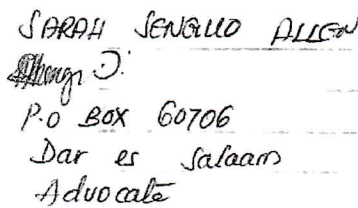 SARAH SENGILLO ALLEN
P.O BOX 60706
Dar es Salaam
Advocate